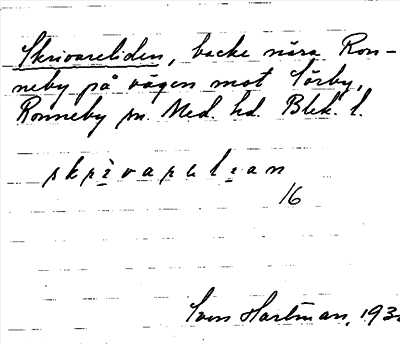 Skrivareliden, backe nära Ron-
neby på vägen mot Sörby,
Ronneby sn. Med. hd. Blek. l.
skrivarelian
16
Sven Hartman, 193